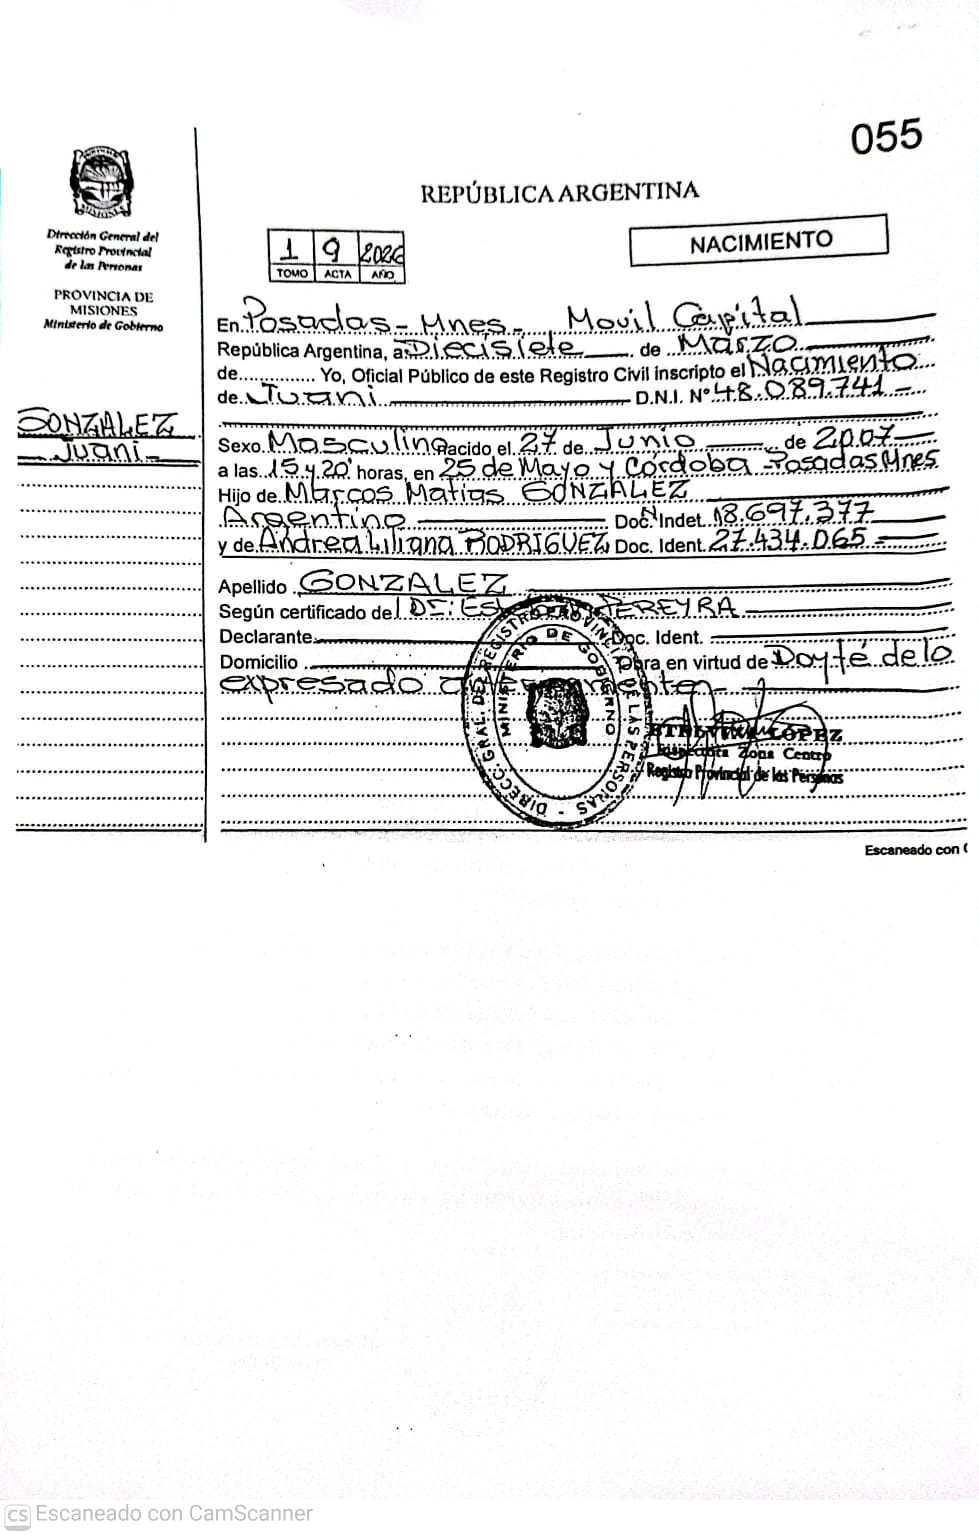 055
REPÚBLICA ARGENTINA
Dirección General del
Registro Provincial
de las Personas
PROVINCIA DE
MISIONES
Ministerio de Gobierno
1 9 2026
TOMO ACTA AÑO
NACIMIENTO
GONZALEZ
Juani
En Posadas - Mnes - Movil Capital
República Argentina, a Diecisiete de Marzo
de.............. Yo, Oficial Público de este Registro Civil inscripto el Nacimiento
de Juani D.N.I. Nº 48.089.741 -
Sexo Masculino nacido el 27 de Junio de 2007
a las 15 y 20' horas, en 25 de Mayo y Córdoba - Posadas Mnes
Hijo de Marcos Matias GONZALEZ
Argentino Doc. Indet. 18.697.377
y de Andrea Liliana RODRIGUEZ Doc. Ident. 27.434.065 -
Apellido GONZALEZ
Según certificado de DE: PEREYRA
Declarante Doc. Ident.
Domicilio Obra en virtud de Doy fé de lo
expresado
DIREC. GRAL. DEL REGISTRO PROVINCIAL DE LAS PERSONAS -
MINISTERIO DE GOBIERNO
LOPEZ
Zona Centro
Registro Provincial de las Personas
Escaneado con
CS Escaneado con CamScanner